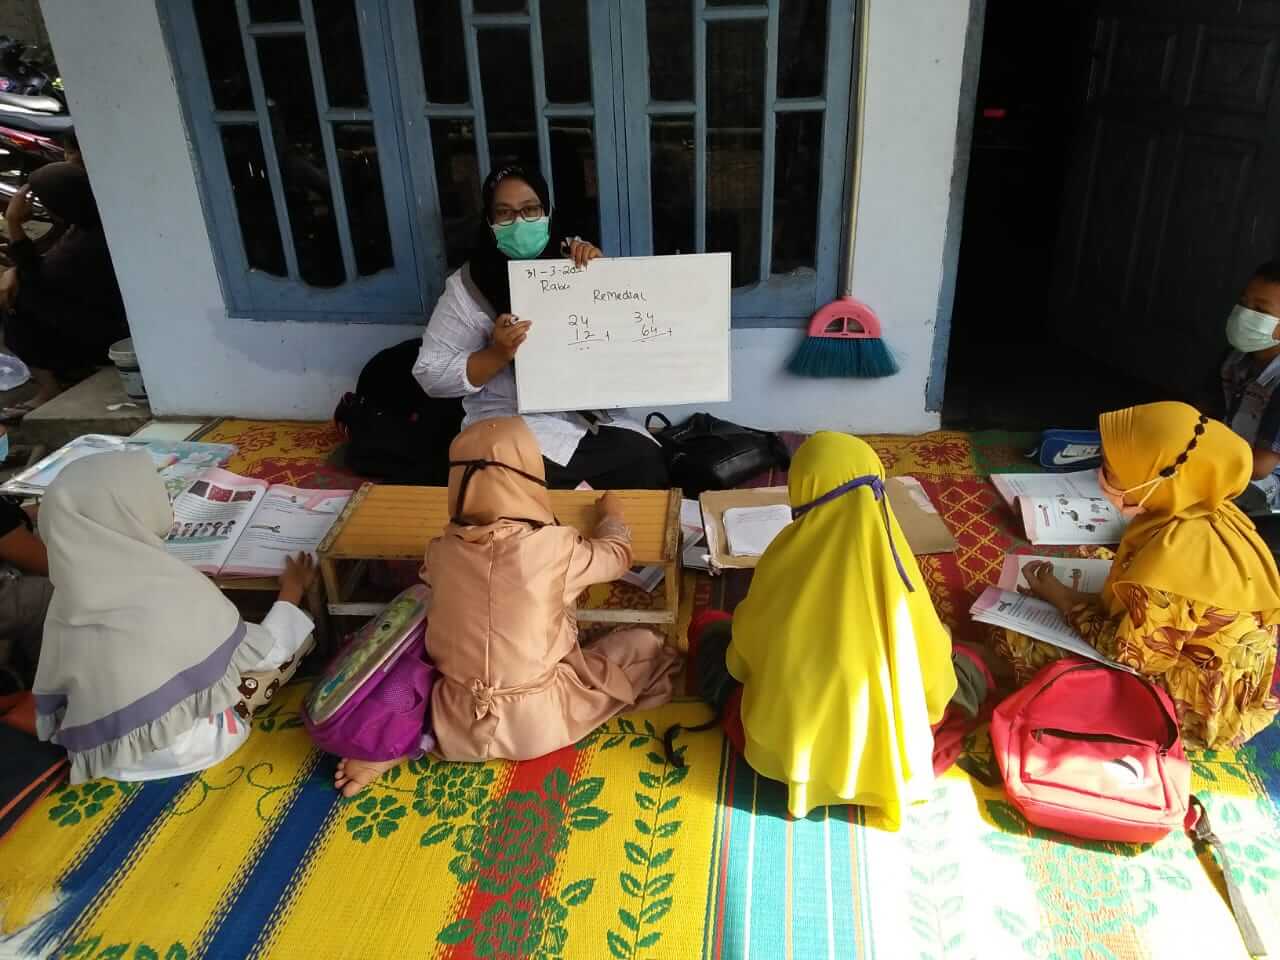 31-3-202
Rabu
Remedial
24 34
12 + 64 +